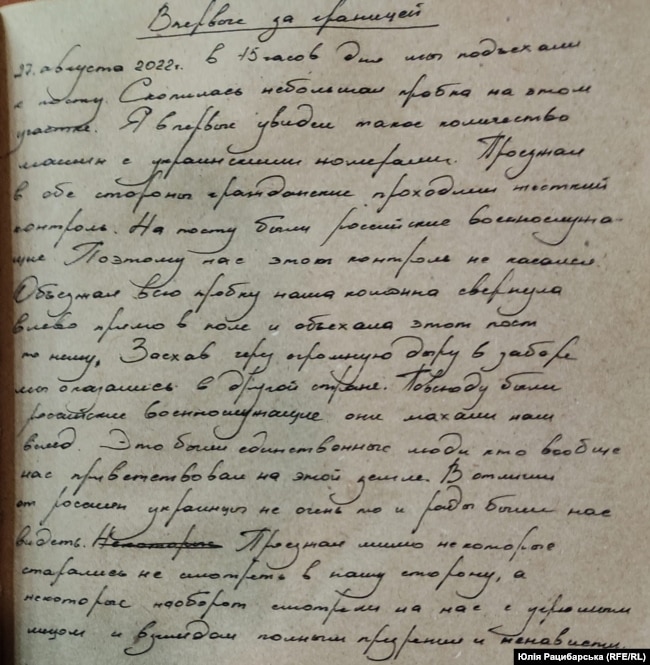 Впервые за границей
27. августа 2022г. в 15 часов дня мы подъехали
к посту. Скопилась небольшая пробка на этом
участке. Я впервые увидел такое количество
машин с украинскими номерами. Проезжая
в обе стороны гражданские проходили жесткий
контроль. На посту были российские военнослужа-
щие Поэтому нас этот контроль не касался.
Объезжая всю пробку наша колонна свернула
влево прямо в поле и объехала этот пост
по нему. Заехав через огромную дыру в заборе
мы оказались в другой стране. Повсюду были
российские военнослужащие они махали нам
вслед. Это были единственные люди кто вообще
нас приветствовал на этой земле. В отличии
от россиян украинцы не очень то и рады были нас
видеть. Некоторые Проезжая мимо некоторые
старались не смотреть в нашу сторону, а
некоторые наоборот смотрели на нас с угрюмым
лицом и взглядом полным презрения и ненависти.
Юлія Рацибарська (RFE/RL)